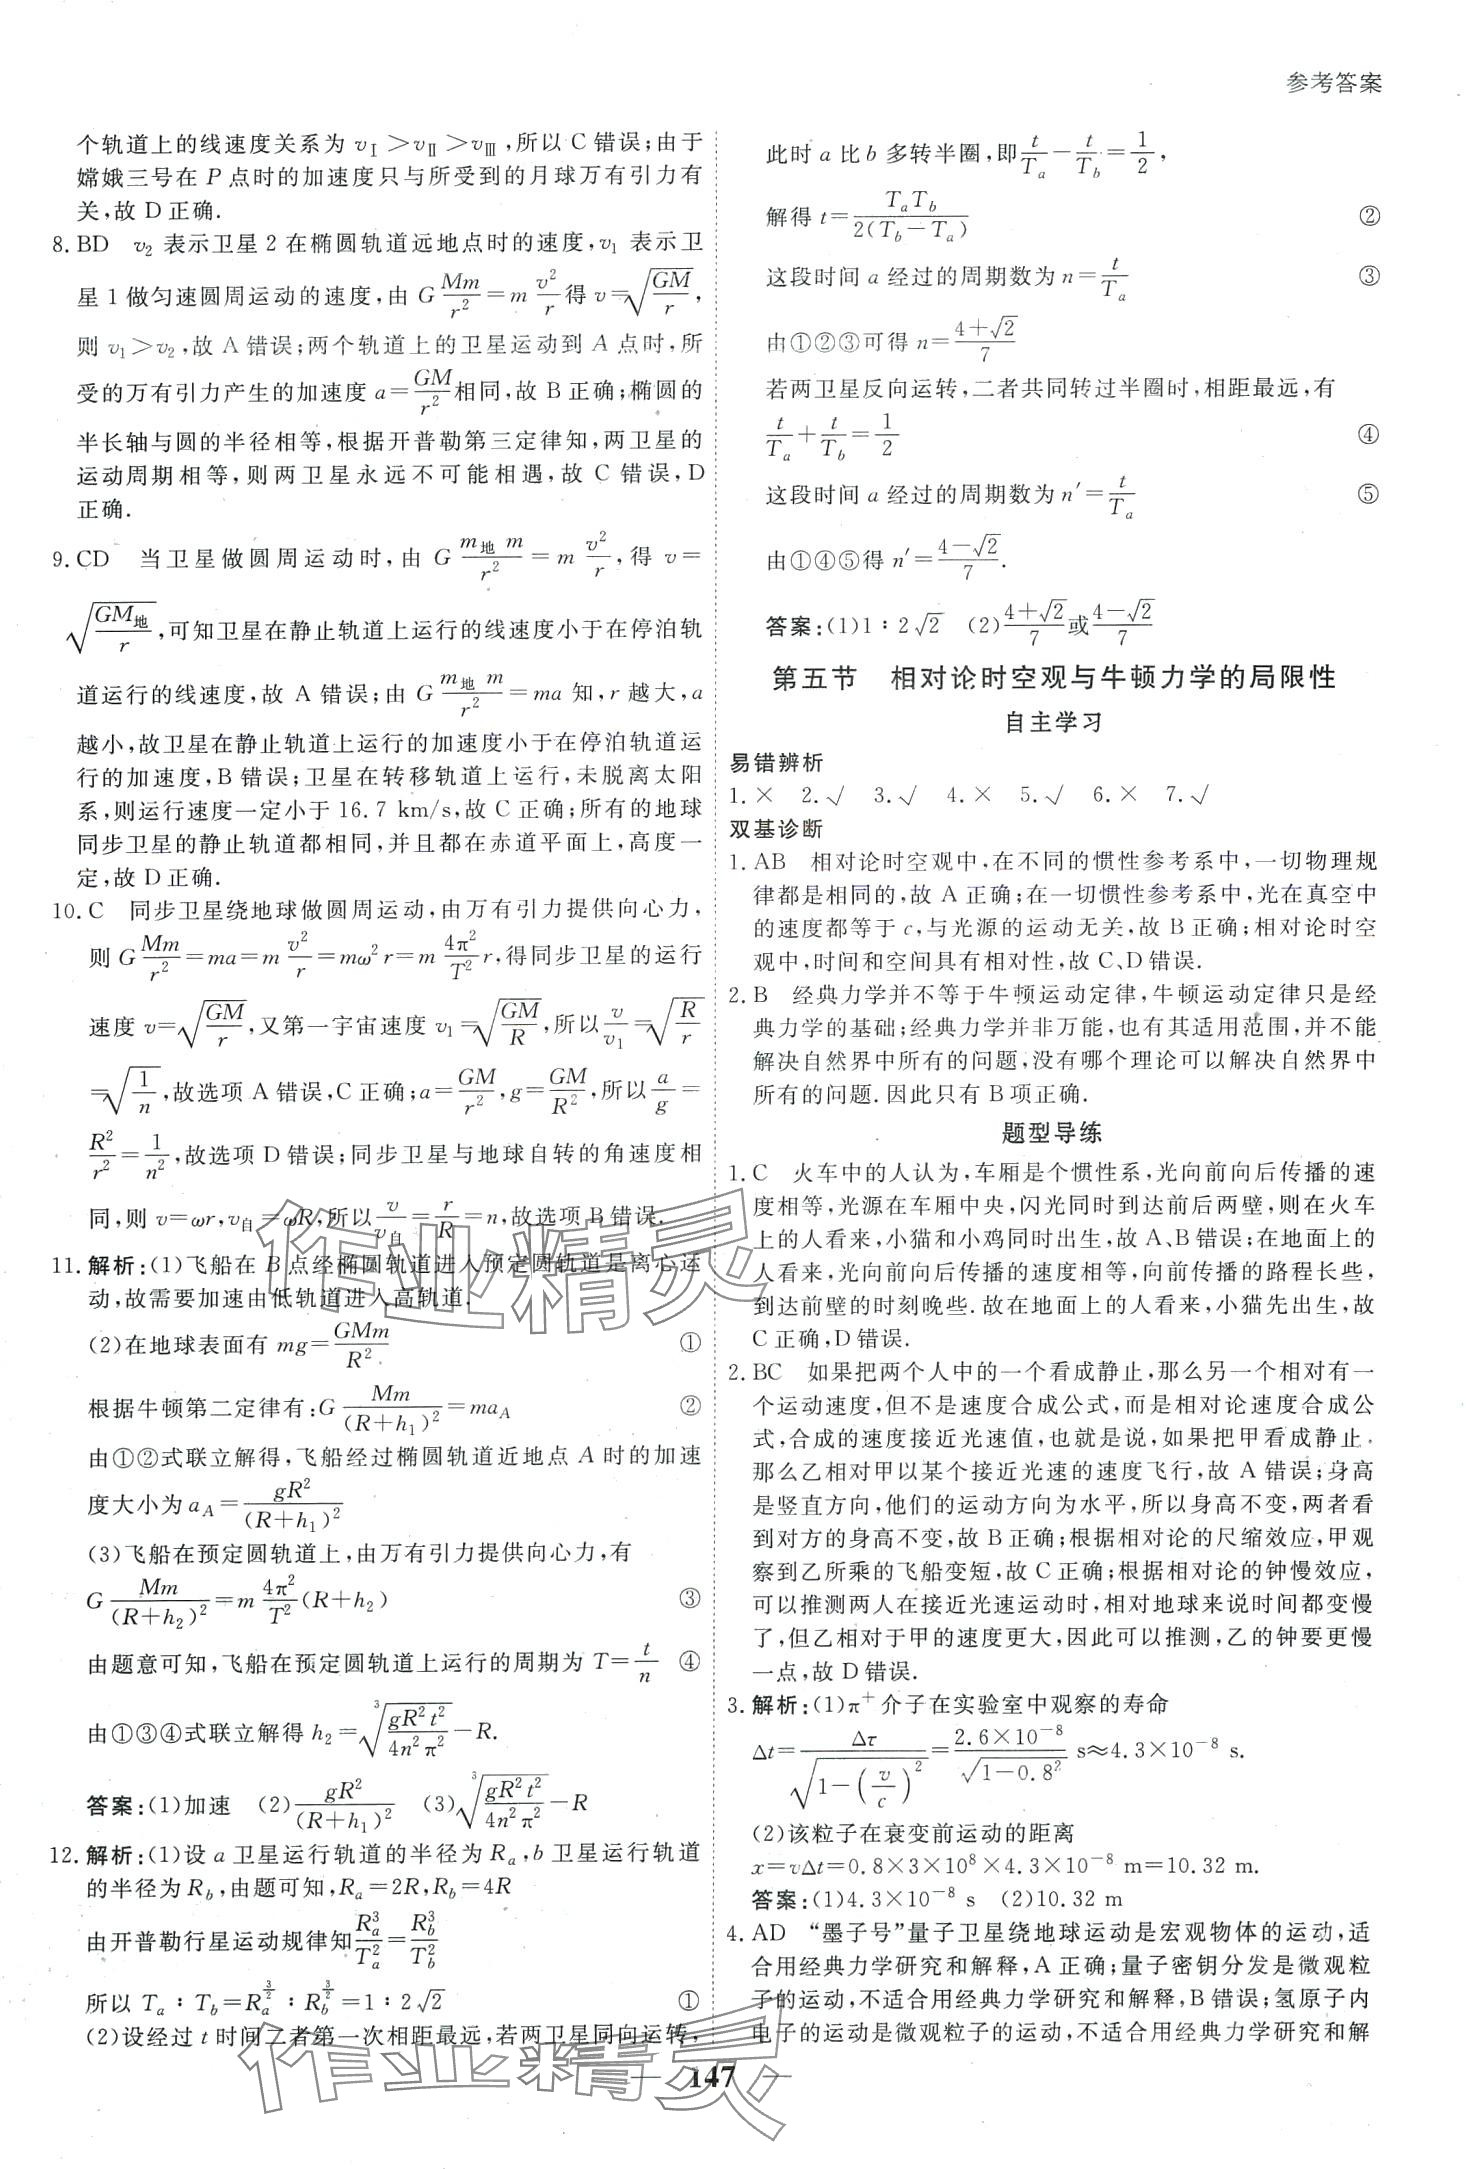 参考答案
个轨道上的线速度关系为 vⅠ>vⅡ>vⅢ,所以 C 错误;由于
嫦娥三号在 P 点时的加速度只与所受到的月球万有引力有
关,故 D 正确.
8. BD v₂ 表示卫星 2 在椭圆轨道远地点时的速度,v₁ 表示卫
星 1 做匀速圆周运动的速度,由 G Mm/r² = m v²/r 得 v=√(GM/r),
则 v₁>v₂,故 A 错误;两个轨道上的卫星运动到 A 点时,所
受的万有引力产生的加速度 a=GM/r² 相同,故 B 正确;椭圆的
半长轴与圆的半径相等,根据开普勒第三定律知,两卫星的
运动周期相等,则两卫星永远不可能相遇,故 C 错误,D
正确.
9. CD 当卫星做圆周运动时,由 G m地 m/r² = m v²/r,得 v=
√(GM地/r),可知卫星在静止轨道上运行的线速度小于在停泊轨
道运行的线速度,故 A 错误;由 G m地 m/r² = ma 知,r 越大,a
越小,故卫星在静止轨道上运行的加速度小于在停泊轨道运
行的加速度,B 错误;卫星在转移轨道上运行,未脱离太阳
系,则运行速度一定小于 16.7 km/s,故 C 正确;所有的地球
同步卫星的静止轨道都相同,并且都在赤道平面上,高度一
定,故 D 正确.
10. C 同步卫星绕地球做圆周运动,由万有引力提供向心力,
则 G Mm/r² = ma = m v²/r = mω²r = m 4π²/T² r,得同步卫星的运行
速度 v=√(GM/r),又第一宇宙速度 v₁=√(GM/R),所以 v/v₁=√(R/r)
=√(1/n),故选项 A 错误,C 正确;a=GM/r²,g=GM/R²,所以 a/g=
R²/r²=1/n²,故选项 D 错误;同步卫星与地球自转的角速度相
同,则 v=ωr,v自=ωR,所以 v/v自=r/R=n,故选项 B 错误.
11. 解析:(1)飞船在 B 点经椭圆轨道进入预定圆轨道是离心运
动,故需要加速由低轨道进入高轨道.
(2)在地球表面有 mg=GMm/R² ①
根据牛顿第二定律有:G Mm/(R+h₁)²=ma_A ②
由①②式联立解得,飞船经过椭圆轨道近地点 A 时的加速
度大小为 a_A=gR²/(R+h₁)²
(3)飞船在预定圆轨道上,由万有引力提供向心力,有
G Mm/(R+h₂)²=m 4π²/T² (R+h₂) ③
由题意可知,飞船在预定圆轨道上运行的周期为 T=t/n ④
由①③④式联立解得 h₂=³√(gR²t²/4n²π²)-R.
答案:(1)加速 (2)gR²/(R+h₁)² (3)³√(gR²t²/4n²π²)-R
12. 解析:(1)设 a 卫星运行轨道的半径为 Rₐ,b 卫星运行轨道
的半径为 R_b,由题可知,Rₐ=2R,R_b=4R
由开普勒行星运动规律知 Rₐ³/Tₐ²=R_b³/T_b²
所以 Tₐ∶T_b=Rₐ^(3/2)∶R_b^(3/2)=1∶2√2 ①
(2)设经过 t 时间二者第一次相距最远,若两卫星同向运转,
此时 a 比 b 多转半圈,即 t/Tₐ-t/T_b=1/2,
解得 t=TₐT_b/2(T_b-Tₐ) ②
这段时间 a 经过的周期数为 n=t/Tₐ ③
由①②③可得 n=(4+√2)/7
若两卫星反向运转,二者共同转过半圈时,相距最远,有
t/Tₐ+t/T_b=1/2 ④
这段时间 a 经过的周期数为 n′=t/Tₐ ⑤
由①④⑤得 n′=(4-√2)/7.
答案:(1)1∶2√2 (2)(4+√2)/7 或 (4-√2)/7
第五节 相对论时空观与牛顿力学的局限性
自主学习
易错辨析
1.× 2.√ 3.√ 4.× 5.√ 6.× 7.√
双基诊断
1. AB 相对论时空观中,在不同的惯性参考系中,一切物理规
律都是相同的,故 A 正确;在一切惯性参考系中,光在真空中
的速度都等于 c,与光源的运动无关,故 B 正确;相对论时空
观中,时间和空间具有相对性,故 C、D 错误.
2. B 经典力学并不等于牛顿运动定律,牛顿运动定律只是经
典力学的基础;经典力学并非万能,也有其适用范围,并不能
解决自然界中所有的问题,没有哪个理论可以解决自然界中
所有的问题.因此只有 B 项正确.
题型导练
1. C 火车中的人认为,车厢是个惯性系,光向前向后传播的速
度相等,光源在车厢中央,闪光同时到达前后两壁,则在火车
上的人看来,小猫和小鸡同时出生,故 A、B 错误;在地面上的
人看来,光向前向后传播的速度相等,向前传播的路程长些,
到达前壁的时刻晚些.故在地面上的人看来,小猫先出生,故
C 正确,D 错误.
2. BC 如果把两个人中的一个看成静止,那么另一个相对有一
个运动速度,但不是速度合成公式,而是相对论速度合成公
式,合成的速度接近光速值,也就是说,如果把甲看成静止,
那么乙相对甲以某个接近光速的速度飞行,故 A 错误;身高
是竖直方向,他们的运动方向为水平,所以身高不变,两者看
到对方的身高不变,故 B 正确;根据相对论的尺缩效应,甲观
察到乙所乘的飞船变短,故 C 正确;根据相对论的钟慢效应,
可以推测两人在接近光速运动时,相对地球来说时间都变慢
了,但乙相对于甲的速度更大,因此可以推测,乙的钟要更慢
一点,故 D 错误.
3. 解析:(1)π⁺ 介子在实验室中观察的寿命
Δt=Δτ/√(1-(v/c)²)=2.6×10⁻⁸/√(1-0.8²) s≈4.3×10⁻⁸ s.
(2)该粒子在衰变前运动的距离
x=vΔt=0.8×3×10⁸×4.3×10⁻⁸ m=10.32 m.
答案:(1)4.3×10⁻⁸ s (2)10.32 m
4. AD “墨子号”量子卫星绕地球运动是宏观物体的运动,适
合用经典力学研究和解释,A 正确;量子密钥分发是微观粒
子的运动,不适合用经典力学研究和解释,B 错误;氢原子内
电子的运动是微观粒子的运动,不适合用经典力学研究和解
147
作业精灵
作业精灵